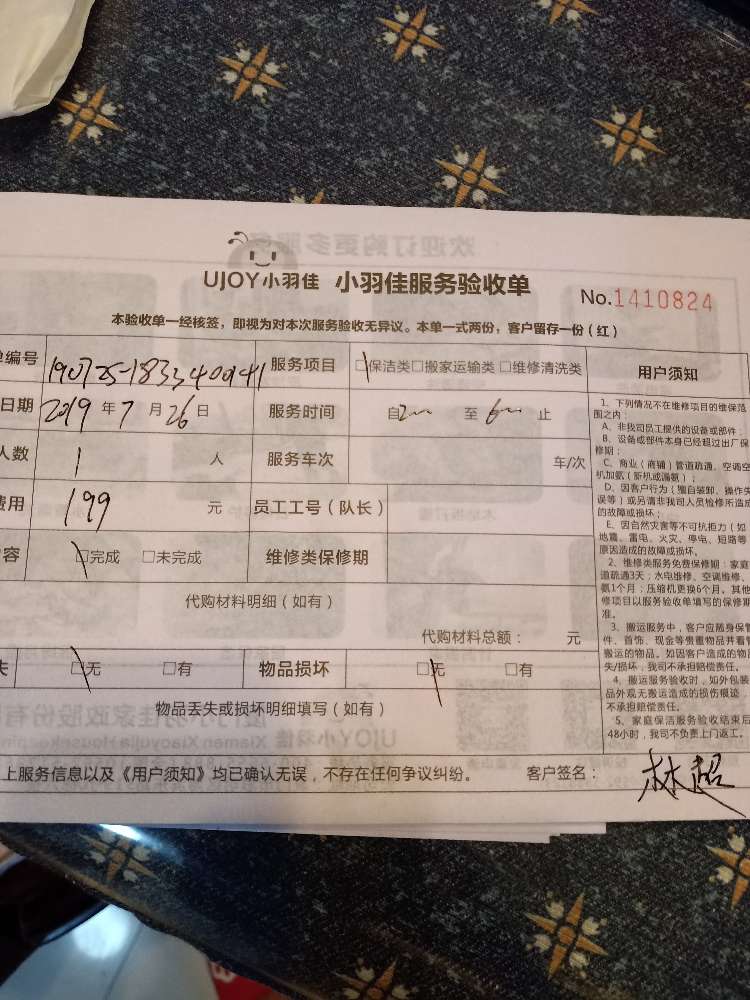 UJOY小羽佳 小羽佳服务验收单 No.1410824
本验收单一经核签，即视为对本次服务验收无异议。本单一式两份，客户留存一份（红）
编号 190725-183340041 服务项目 □保洁类□搬家运输类□维修清洗类
日期 2019 年 7 月 26 日 服务时间 自2 至6 止
人数 1 人 服务车次 车/次
费用 199 元 员工工号（队长）
容 □完成 □未完成 维修类保修期
代购材料明细（如有）
代购材料总额： 元
失 □无 □有 物品损坏 □无 □有
物品丢失或损坏明细填写（如有）
上服务信息以及《用户须知》均已确认无误，不存在任何争议纠纷。 客户签名： 林超
用户须知
1、下列情况不在维修项目的维保范
围之内：
A、非我司员工提供的设备或部件；
B、设备或部件本身已经超过出厂保
修期；
C、商业（商铺）管道疏通、空调空
机加氨（新机或漏氨）；
D、因客户行为（擅自装卸、操作失
误等）或另请非我司人员检修所造成
的故障或损坏；
E、因自然灾害等不可抗拒力（如
地震、雷电、火灾、停电、短路等
原因造成的故障或损坏。
2、维修类服务免费保修期：家庭
道疏通3天；水电维修、空调维修、
氨1个月；压缩机更换6个月。其他
修项目以服务验收单填写的保修期
准。
3、搬运服务中，客户应随身保管
件、首饰、现金等贵重物品并看管
搬运的物品。如因客户造成的物品
失/损坏，我司不承担赔偿责任。
4、搬运服务验收时，如外包装
品外观无搬运造成的损伤痕迹，
不承担赔偿责任。
5、家庭保洁服务验收结束后
48小时，我司不负责上门返工。